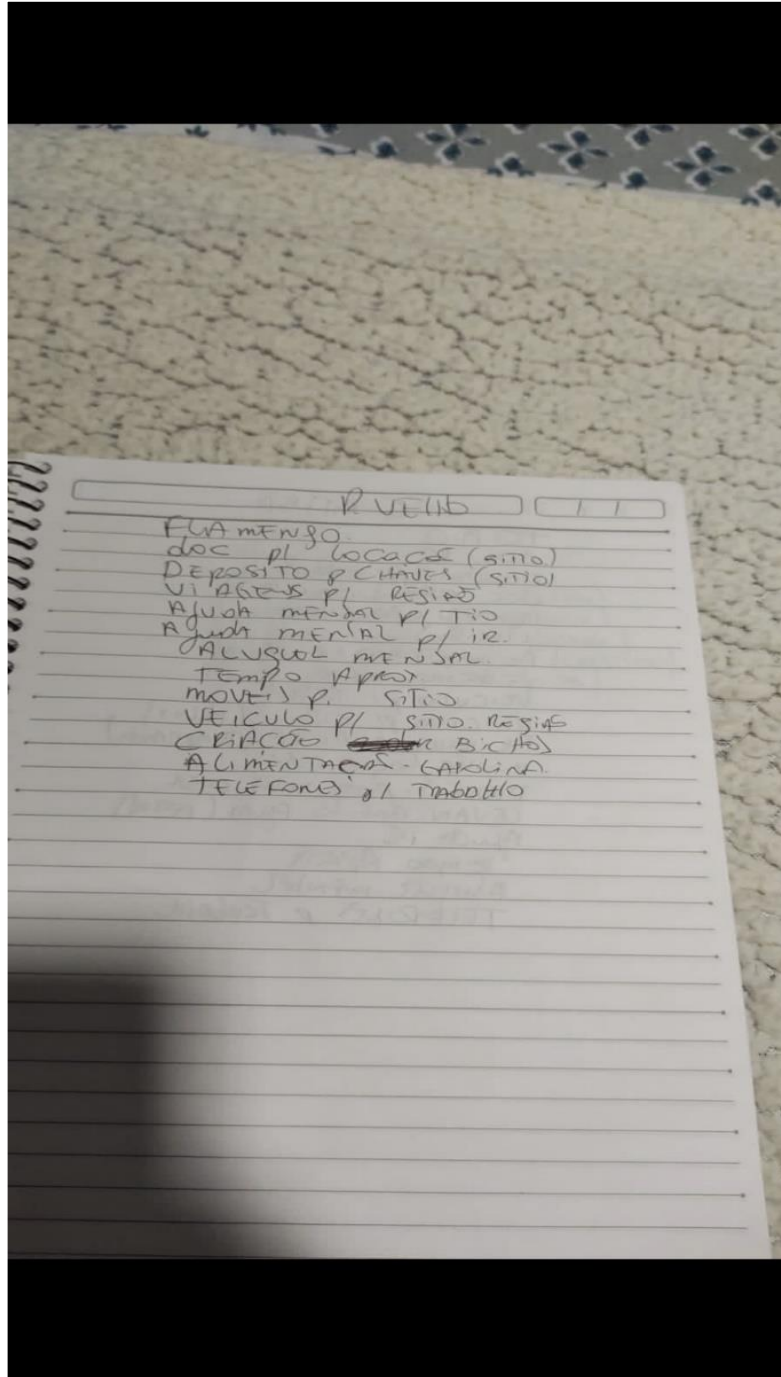 R VELHO
FLAMENGO
doc p/ LOCACOE (SITIO)
DEPOSITO P CHAVES (SITIO)
VIAGENS P/ REGIAO
AJUDA MENSAL P/ TIO
AJUDA MENSAL P/ IR.
ALUGUEL MENSAL
TEMPO APROX.
MOVEIS P. SITIO
VEICULO P/ SITIO. REGIAO
CRIACAO BICHOS
ALIMENTACAO - GASOLINA.
TELEFONES P/ TRABALHO